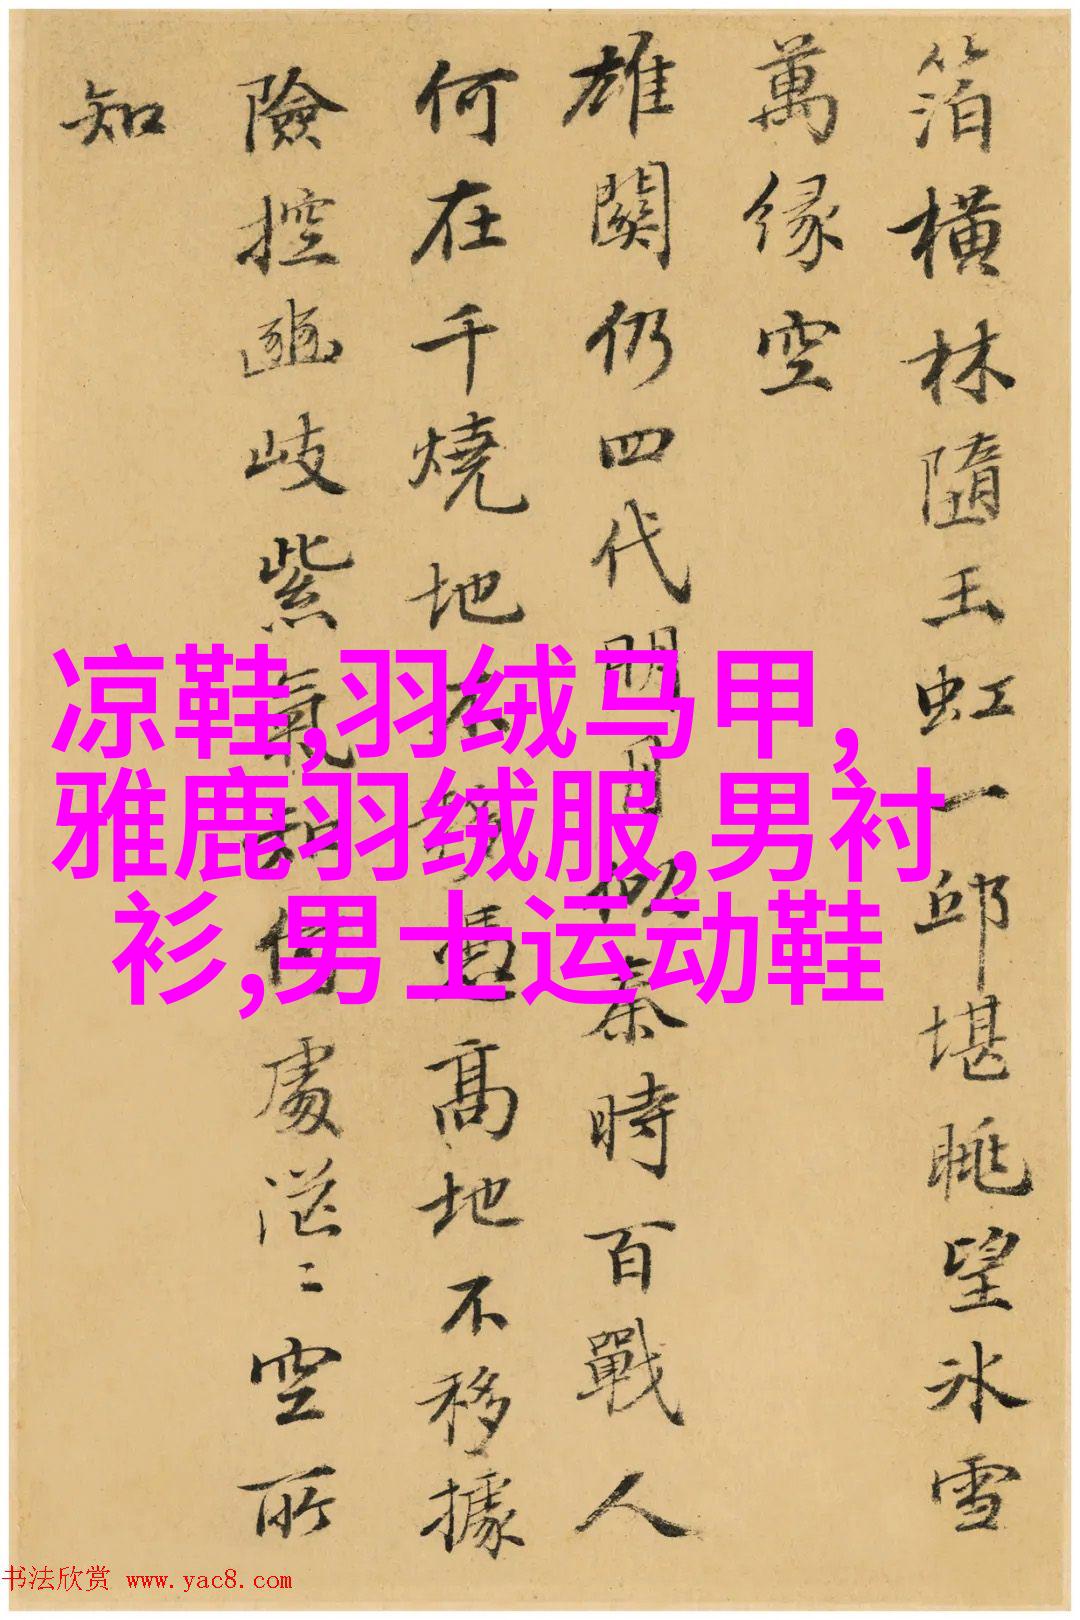 箔橫林隨玉虹一邱堪眺望冰雪
萬緣空
雄關仍四代明月似秦時百戰人
何在千燒地高地不移據
險控幽岐紫氣何處茫〻空所
知
凉鞋,羽绒马甲,
雅鹿羽绒服,男衬
衫,男士运动鞋
书法欣赏 www.yac8.com